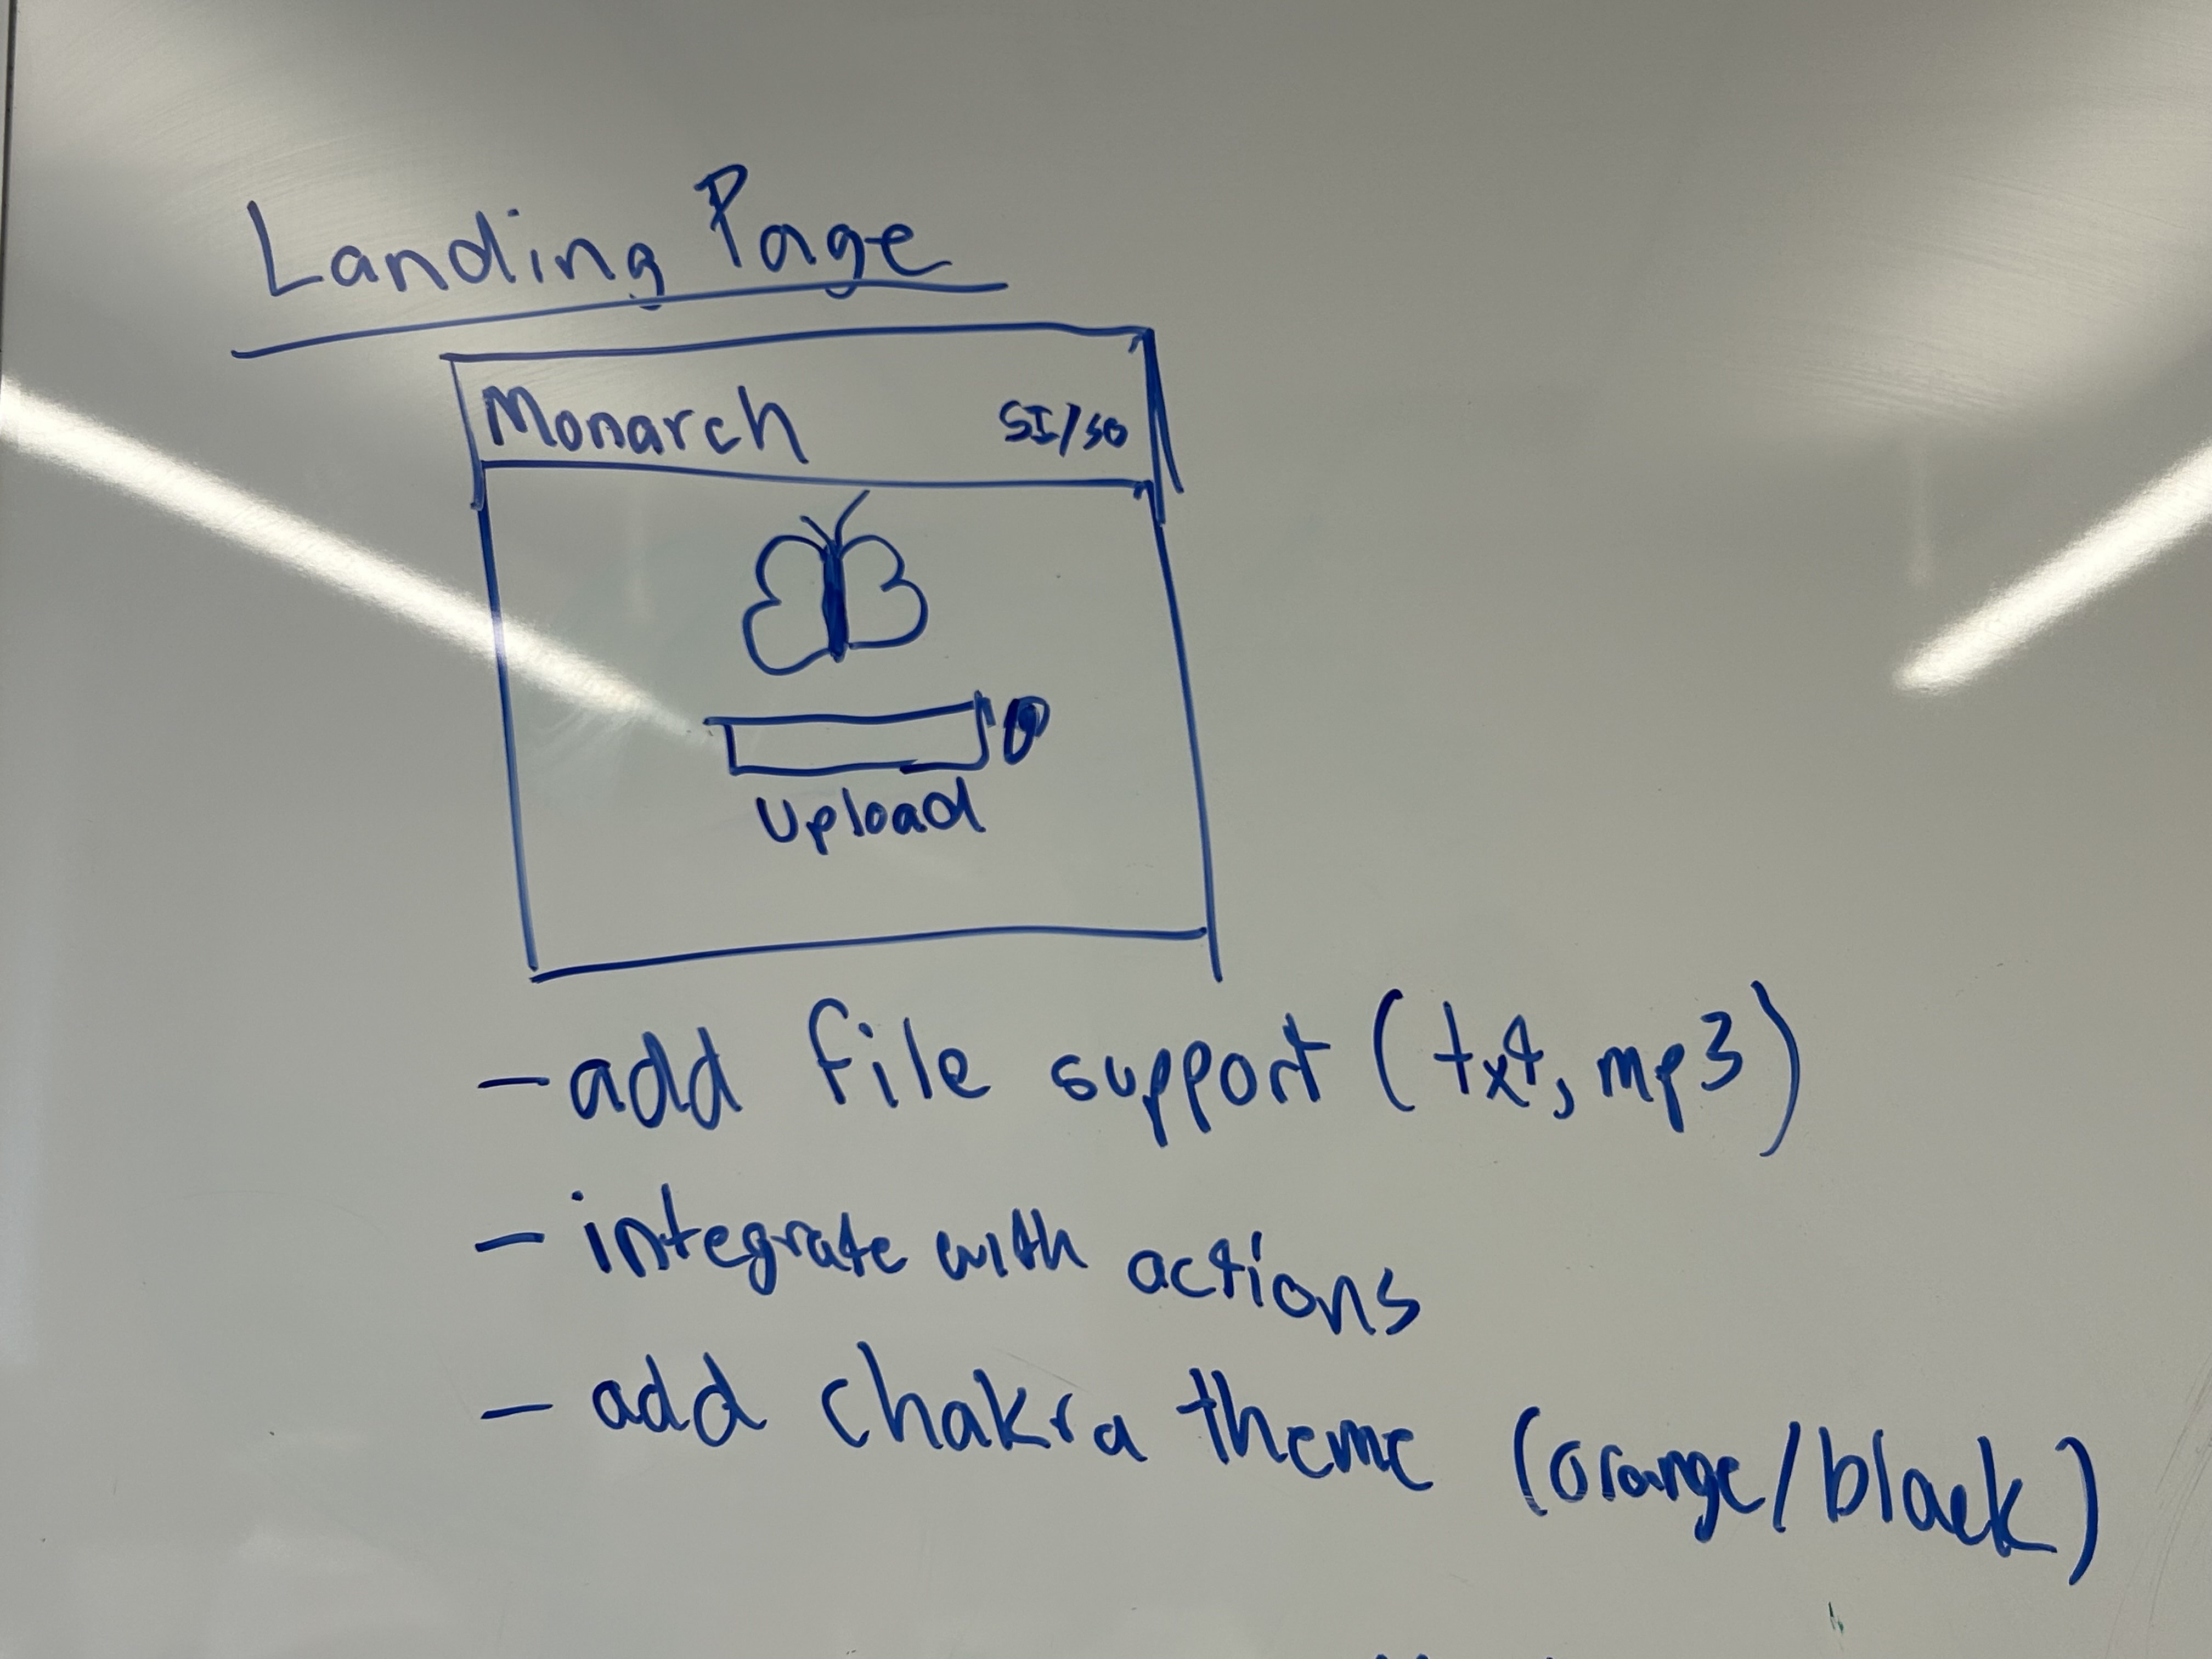 Landing Page
Monarch SI/SO
Upload
- add file support (txt, mp3)
- integrate with actions
- add chakra theme (orange/black)